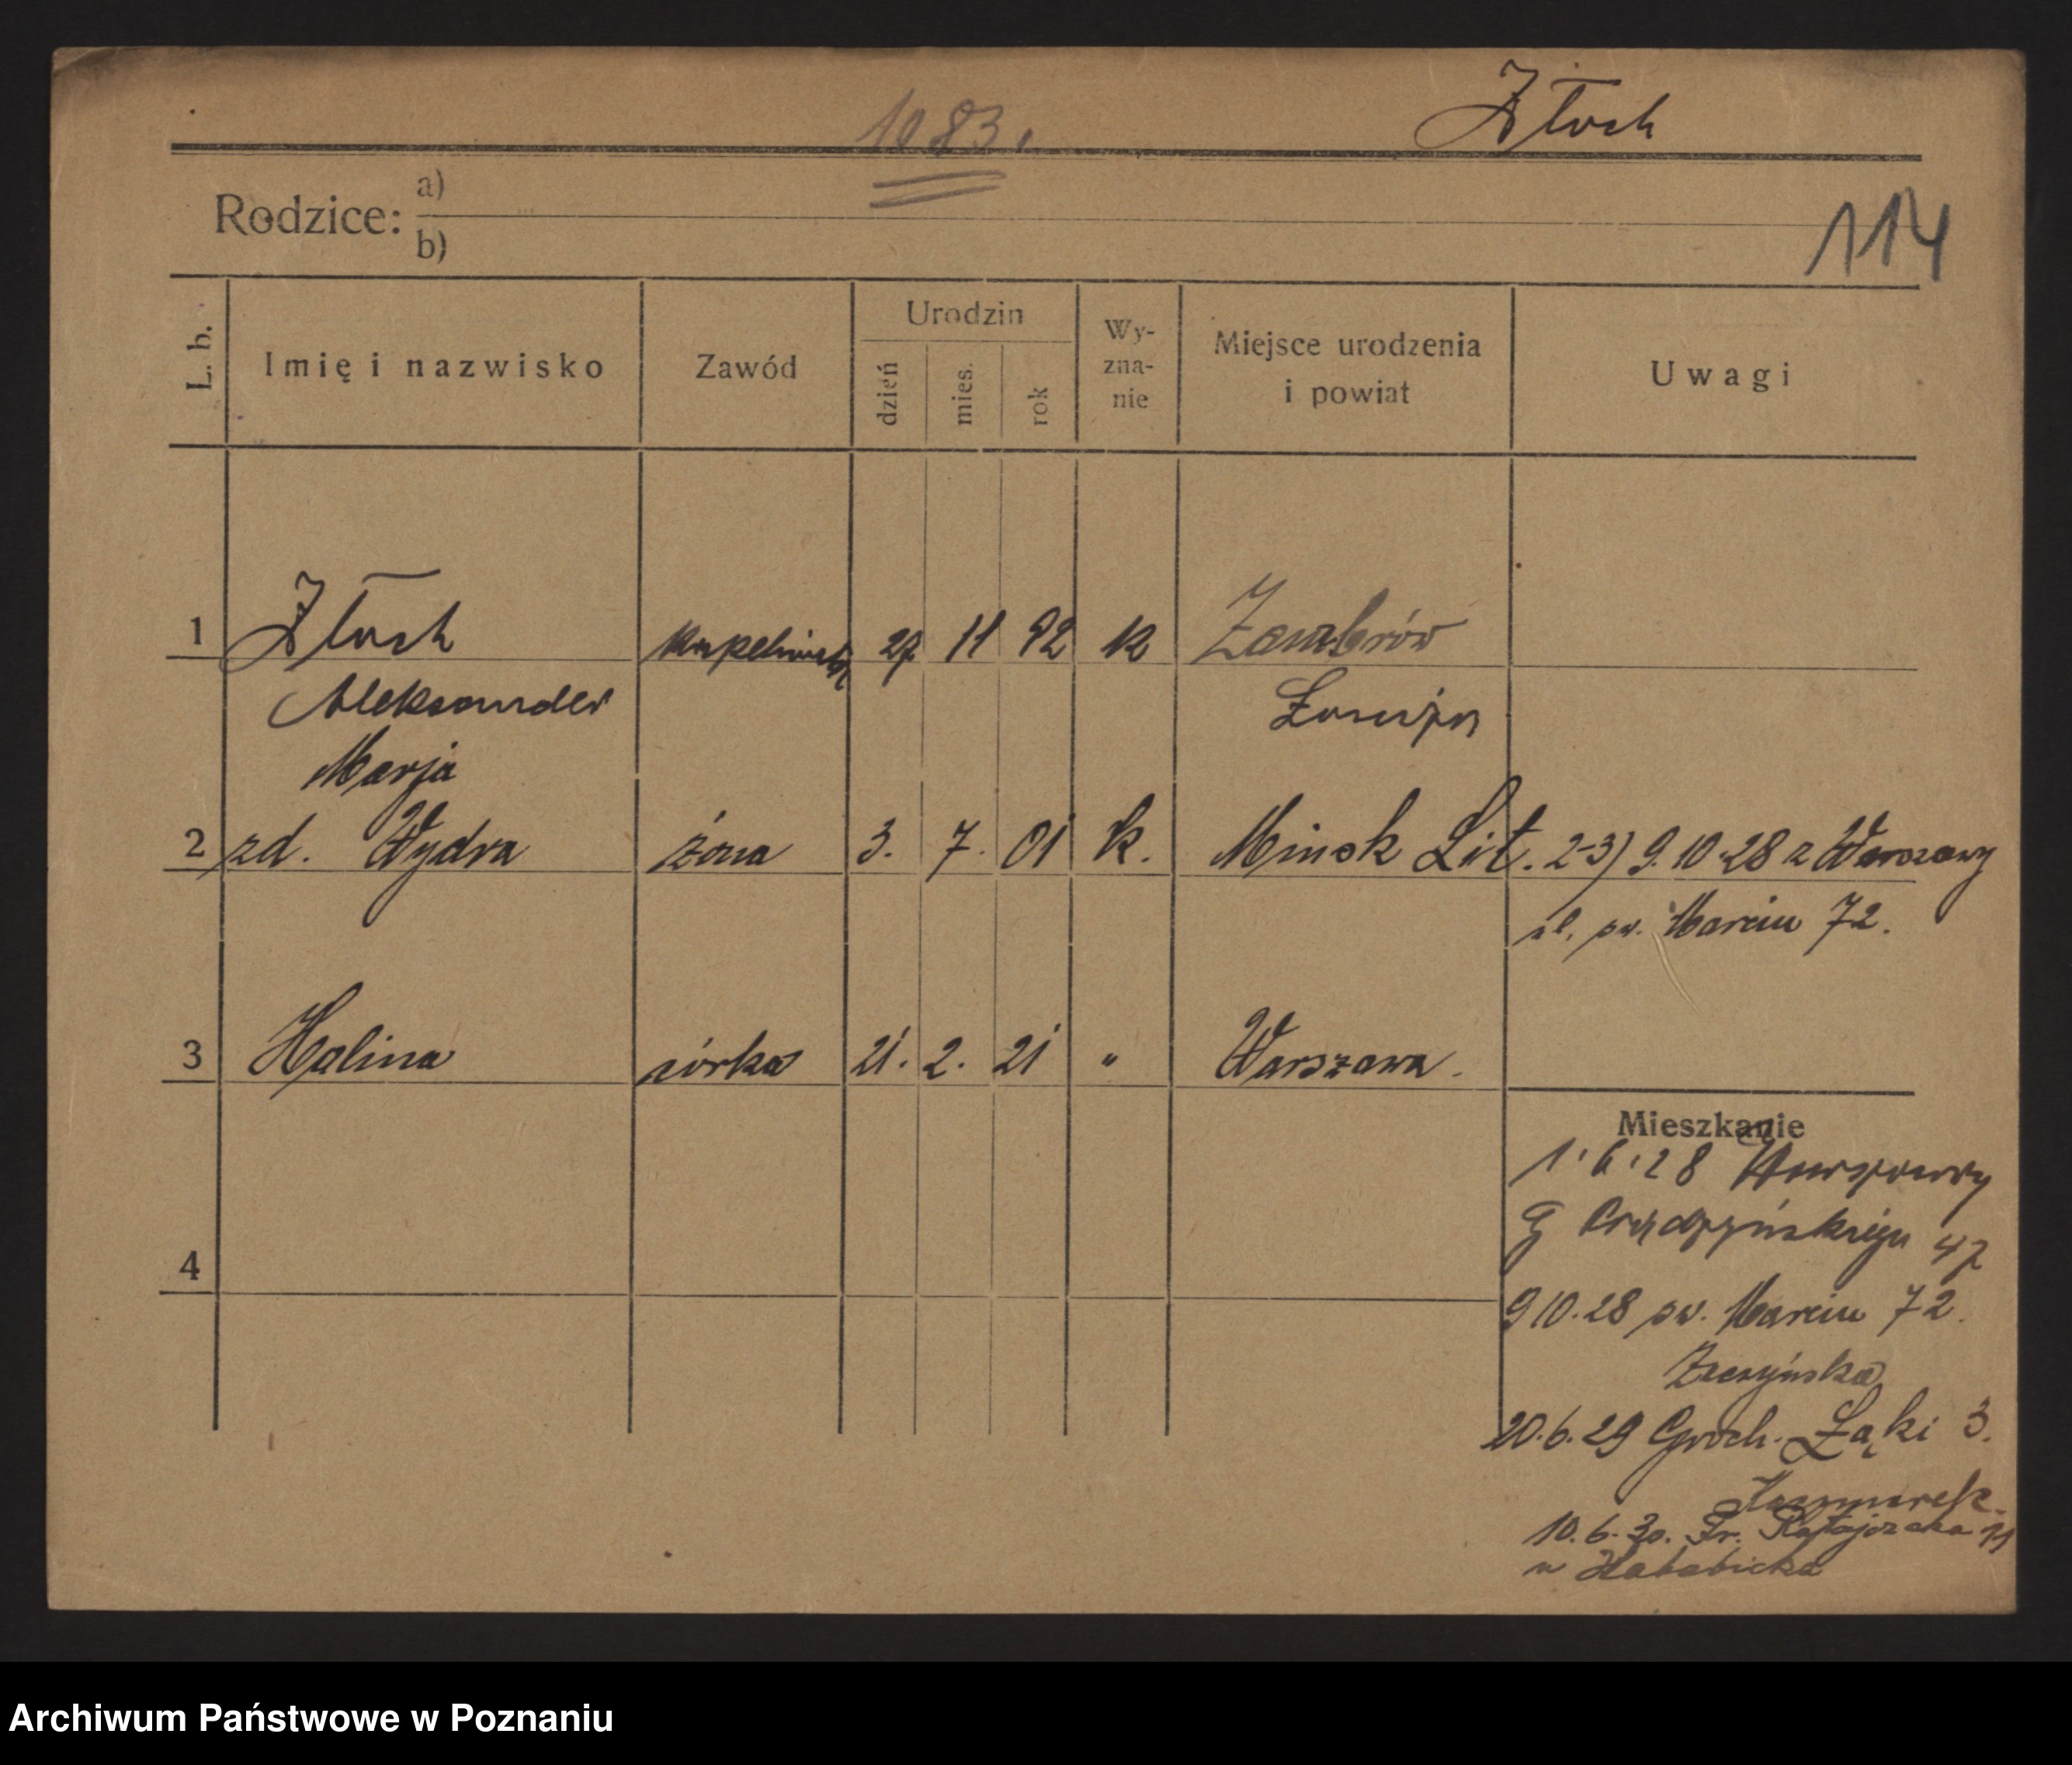 1083.
Złoch
Rodzice: a)
b)
114
L. b.
Imię i nazwisko
Zawód
Urodzin
dzień
mies.
rok
Wy-
zna-
nie
Miejsce urodzenia
i powiat
Uwagi
1 Złoch 11 92 k Zambrów
Aleksander Łomża
Marja
2 zd. Wydra żona 3. 7. 01 k. Minsk Lit. 2-3) 9.10.28 z Warszawy
ul. św. Marcin 72.
3 Halina córka 21. 2. 21 " Warszawa.
Mieszkanie
1.6.28 Warszawy
G Prądzyńskiego 47
4
9 10.28 św. Marcin 72.
20.6.29 Groch. Łąki 3.
Kaczmarek
10.6.30. Fr. Ratajczaka
Archiwum Państwowe w Poznaniu